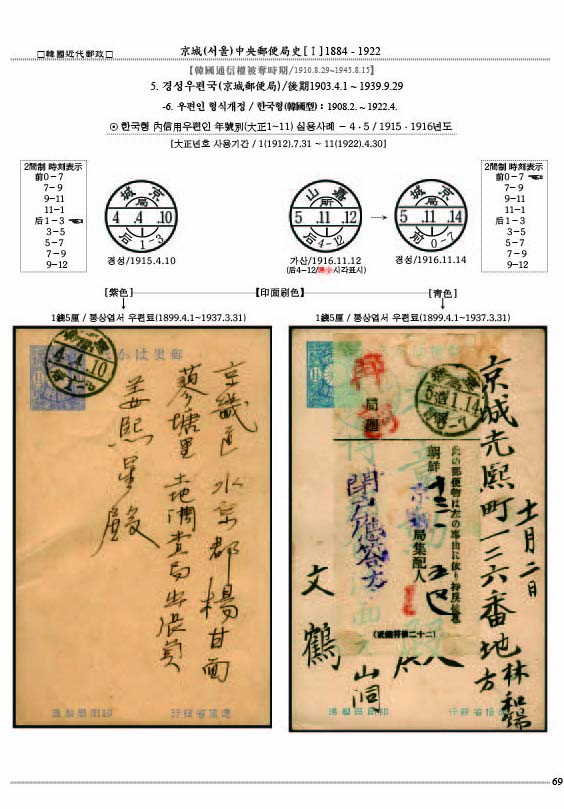 □韓國近代郵政□
京城(서울)中央郵便局史[Ⅰ]1884 - 1922
【韓國通信權被奪時期/1910.8.29~1945.8.15】
5. 경성우편국(京城郵便局)/後期1903.4.1 ~ 1939.9.29
-6. 우편인 형식개정 / 한국형(韓國型) : 1908.2. ~ 1922.4.
⊙ 한국형 內信用우편인 年號別(大正1~11) 실용사례 – 4 · 5 / 1915 · 1916년도
[大正년호 사용기간 / 1(1912).7.31 ~ 11(1922).4.30]
2間制 時刻表示
前0 – 7
7 – 9
9 – 11
11 – 1
后1 – 3 ☜
3 – 5
5 – 7
7 – 9
9 – 12
京城
局
4 .4 .10
后1-3
경성/1915.4.10
嘉山
所
5 .11 .12
后4-12
가산/1916.11.12
(后4-12/縮小시각표시)
→
京城
局
5 .11 .14
前0-7
경성/1916.11.14
2間制 時刻表示
前0 – 7 ☜
7 – 9
9 – 11
11 – 1
后1 – 3
3 – 5
5 – 7
7 – 9
9 – 12
[紫色]
【印面刷色】
[青色]
1錢5厘 / 통상엽서 우편료(1899.4.1~1937.3.31)
1錢5厘 / 통상엽서 우편료(1899.4.1~1937.3.31)
郵便はがき
4.4.10
京畿道水京郡楊甘面
蓼塘里
土地調査局出張員
姜熙星殿
印刷局製造
遞信省發行
局
朝鮮
此の郵便物は左の事由に依り
京城局集配人
十一月二日
京城光熙町一三六番地
林和陽
方
文鶴
山洞
殿
印刷局製造
遞信省發行
69